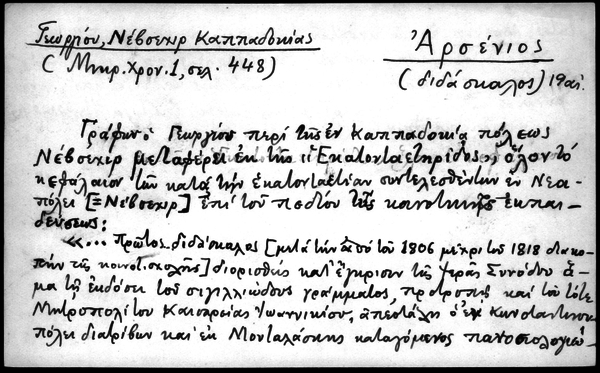 Γεωργίου, Νέβσεχιρ Καππαδοκίας
(Μικρ. Χρον. 1, σελ. 448)
Ἀρσένιος
(διδάσκαλος) 19 αἰ.
Γράφων ὁ Γεωργίου περὶ τῆς ἐν Καππαδοκίᾳ πόλεως
Νέβσεχιρ μεταφέρει ἐκ τῆς «Ἑκατονταετηρίδος» ὅλον τὸ
κεφάλαιον τῶν κατὰ τὴν ἑκατονταετίαν συντελεσθέντων ἐν Νεα-
πόλει [= Νέβσεχιρ] ἐπὶ τοῦ πεδίου τῆς κοινοτικῆς ἐκπαι-
δεύσεως:
«... Πρῶτος διδάσκαλος [μετὰ τὴν ἀπὸ τοῦ 1806 μέχρι τοῦ 1818 διακο-
πὴν τῆς κοινοτ. σχολῆς] διορισθεὶς κατ' ἔγκρισιν τῆς Ἱερᾶς Συνόδου ἅ-
μα τῇ ἐκδόσει τοῦ σιγιλλιώδους γράμματος, προτροπῇ καὶ τοῦ τότε
Μητροπολίτου Καισαρείας Ἰωαννικίου, ἀπεστάλη ὁ ἐν Κωνσταντινου-
πόλει διατρίβων καὶ ἐκ Μουταλάσκης καταγόμενος πανοσιολογιώ-